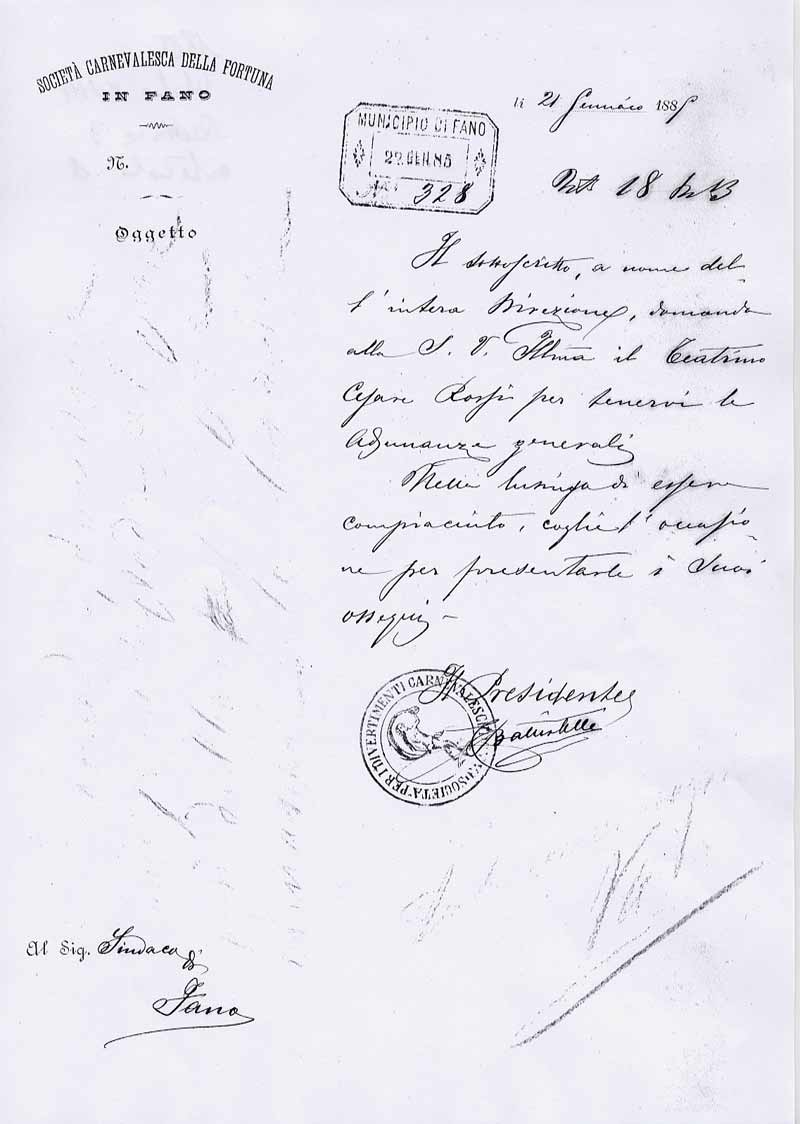 SOCIETÀ CARNEVALESCA DELLA FORTUNA
IN FANO
N.
Oggetto
li 21 Gennaio 1885
MUNICIPIO DI FANO
22 GEN. 85
328
18
Il sottoscritto, a nome del
l'intera Direzione, domanda
alla S. V. Illma il Teatrino
Cesare Rossi per tenervi le
Adunanze generali
Nella lusinga di essere
compiaciuto, coglie l'occasio
ne per presentarle i Suoi
ossequi
Il Presidente
SOCIETÀ PER I DIVERTIMENTI CARNEVALESCHI
Al Sig. Sindaco
di
Fano